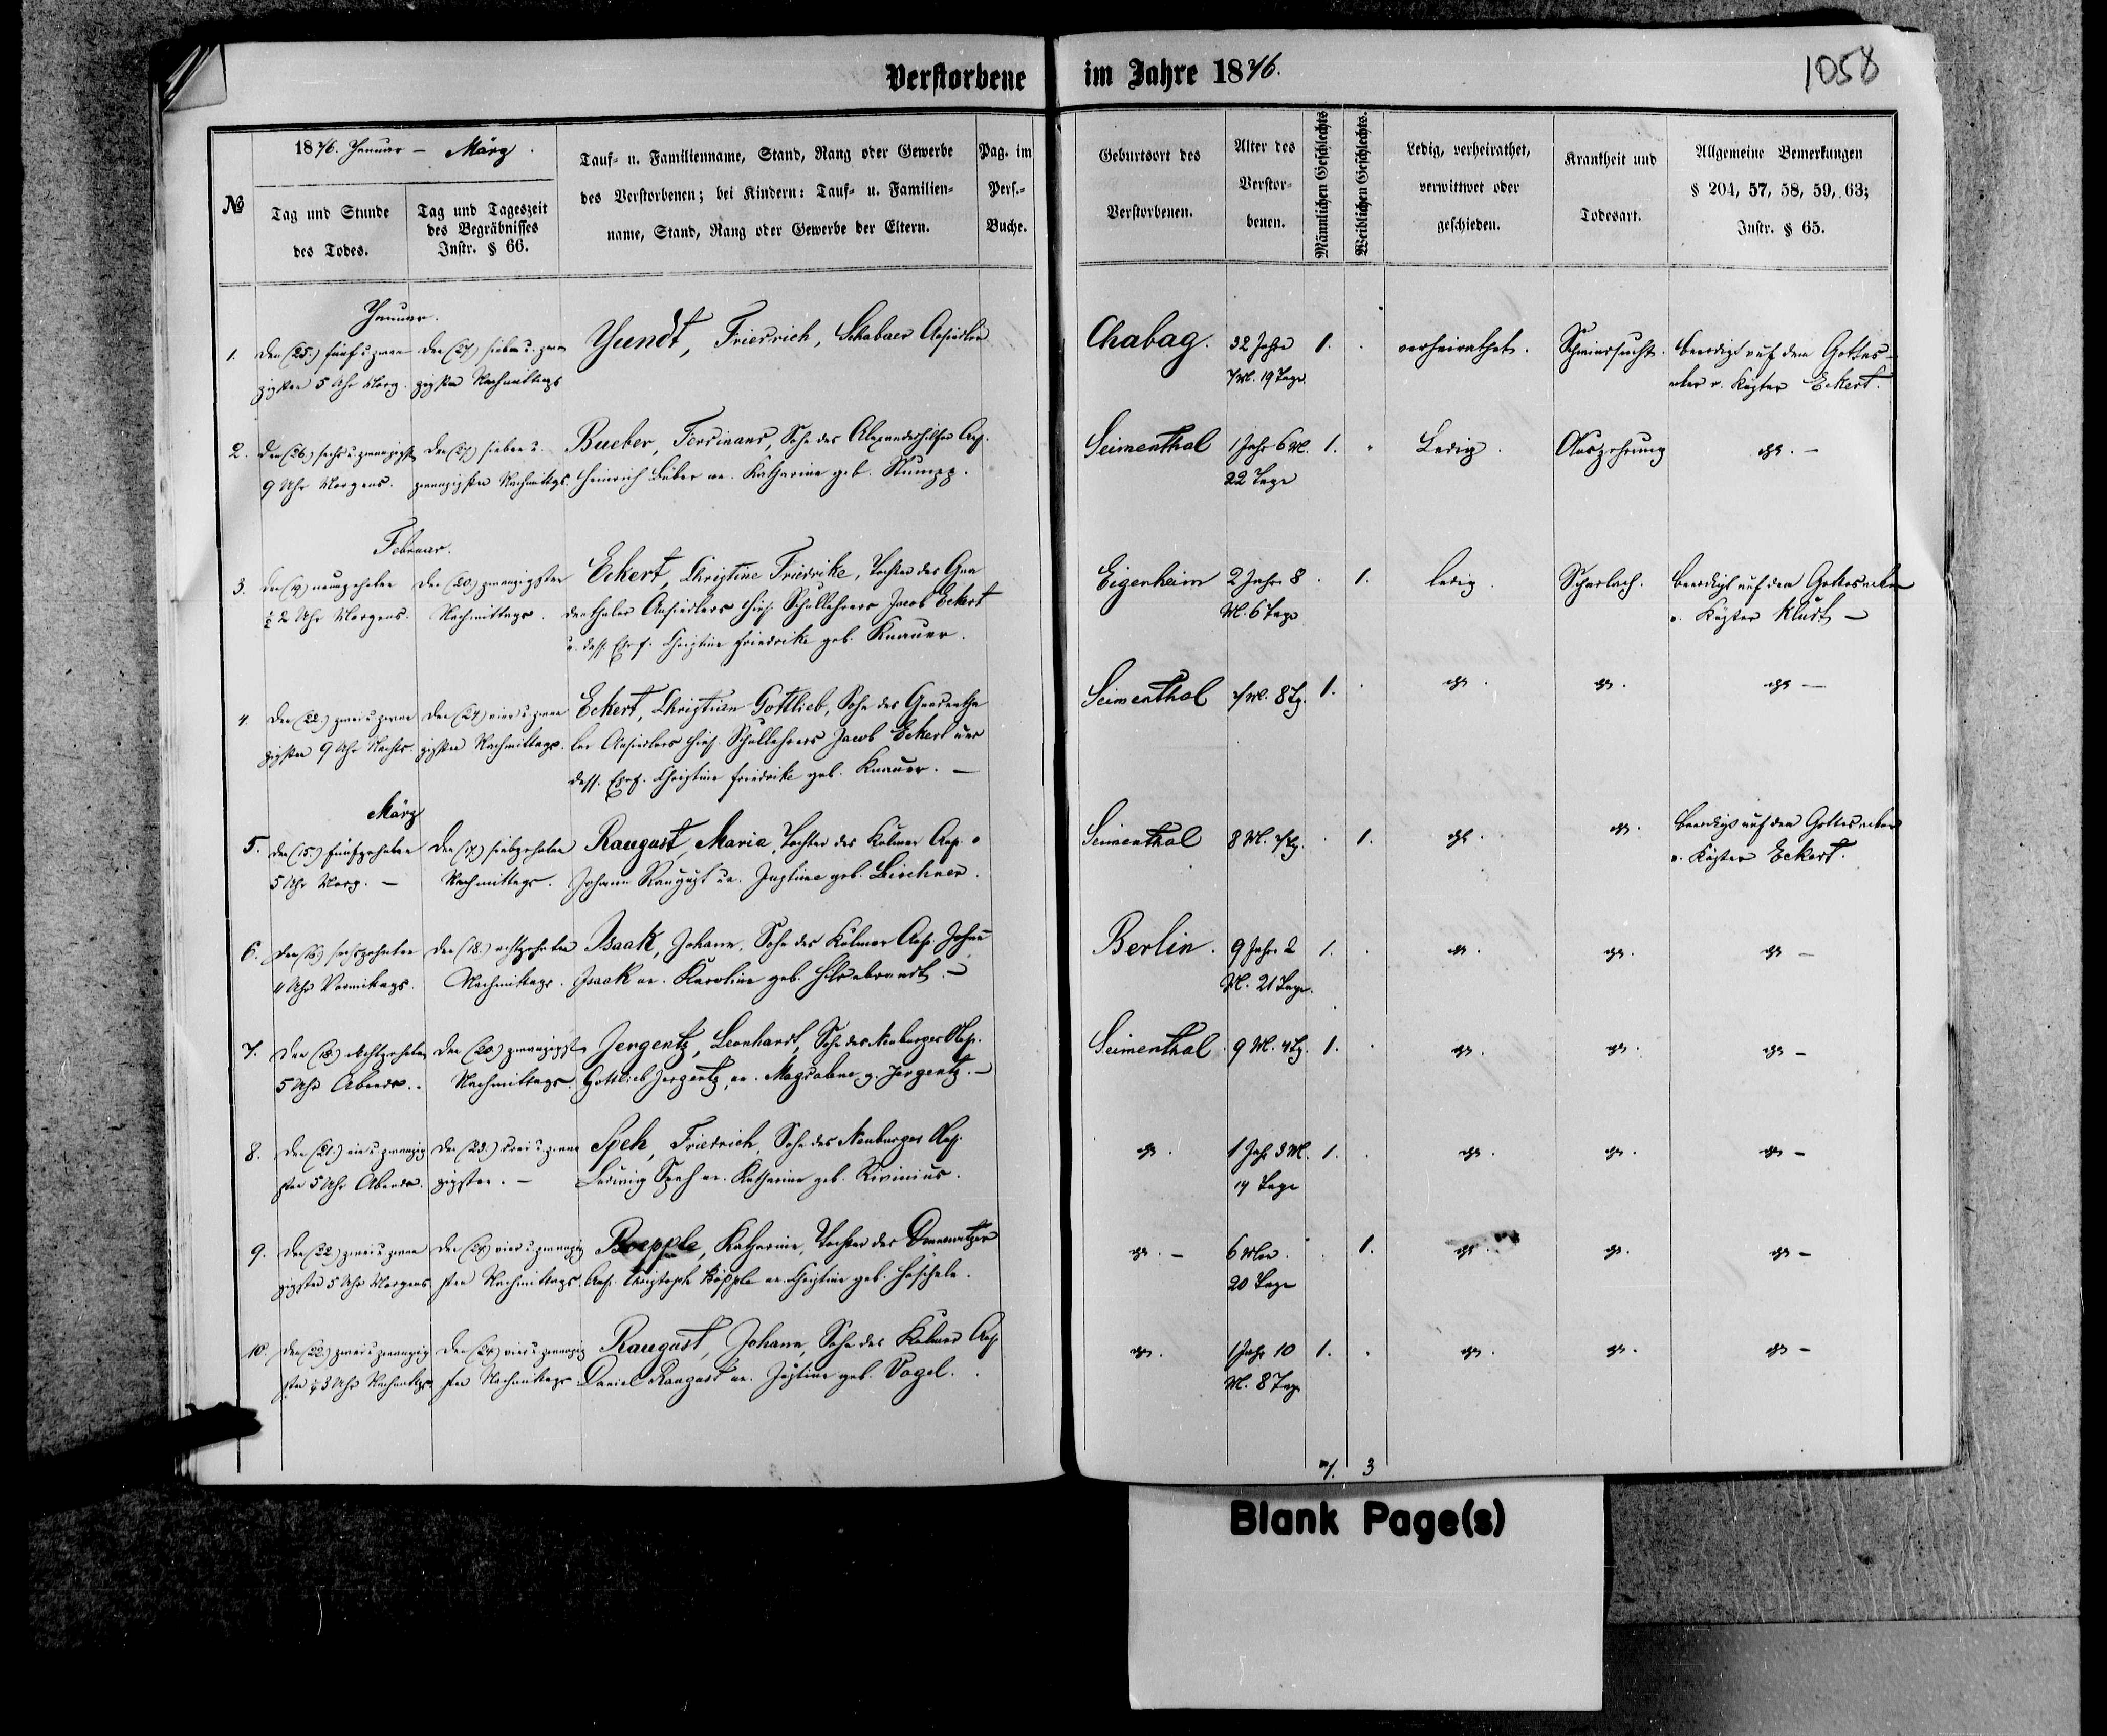 Verstorbene im Jahre 1876.
1058
№
1876. Januar – März.
Tag und Stunde
des Todes.
Tag und Tageszeit
des Begräbnisses
Instr. § 66.
Tauf- u. Familienname, Stand, Rang oder Gewerbe
des Verstorbenen; bei Kindern: Tauf- u. Familien-
name, Stand, Rang oder Gewerbe der Eltern.
Pag. im
Pers.-
Buche.
Geburtsort des
Verstorbenen.
Alter des
Verstor-
benen.
Männlichen Geschlechts
Weiblichen Geschlechts.
Ledig, verheirathet,
verwittwet oder
geschieden.
Krankheit und
Todesart.
Allgemeine Bemerkungen
§ 204, 57, 58, 59, 63;
Instr. § 65.
Januar.
1. Den (25.) fünf u. zwan den (27.) sieben u. zwan Yundt, Friedrich, Schabaer Ansiedler Chabag. 32 Jahre 1. verheirathet. Schwindsucht. beerdigt auf dem Gottes-
zigsten 5 Uhr Morg. zigsten Nachmittags 7 M. 19 Tage. acker v. Küster Eckert.
2. Den (26.) sechs u. zwanzigst den (27.) sieben u. Bueber, Ferdinand, Sohn des Ans. Seimenthal 1 Jahr 6 M. 1. Ledig. Auszehrung
9 Uhr Morgens. zwanzigsten Nachmittgs. Heinrich Büber u. Katharine geb. Stumpp. 22 Tage
Februar.
3. den (19) neunzehnten den (20.) zwanzigsten Eckert, Christine Friedrike, Tochter des Gna Eigenheim 2 Jahre 8 1. ledig. Scharlach. beerdigt auf dem Gottesacker
½ 2 Uhr Morgens. Nachmittags. denthaler Ansiedlers Schullehrers Jacob Eckert M. 6 Tage v. Küster Kludt –
u. dess. Ehef. Christine Friedrike geb. Knauer.
4. Den (22.) zwei u. zwan den (24) vier u. zwan Eckert, Christian Gottlieb, Sohn des Gnadentha Seimenthal 7 M. 8 Tg. 1.
zigsten 9 Uhr Nachts. zigsten Nachmittags. ler Ansiedlers Schullehrers Jacob Eckert und
dess. Ehef. Christine Friedrike geb. Knauer. –
März
5. den (15.) fünfzehnten den (17.) siebzehnten Raugust, Maria, Tochter des Kulmer Ans. Seimenthal 8 M. 7 Tg. 1. beerdigt auf dem Gottesacker
5 Uhr Morg. – Nachmittags. Johann Raugust u. Justine geb. v. Küster Eckert.
6. den (16) sechszehnten den (18.) achtzehnten Isaak, Johann, Sohn des Kulmer Ans. Johann Berlin. 9 Jahre 2 1.
11 Uhr Vormittags. Nachmittags. Isaak u. Karoline geb. Hildebrandt. – M. 21 Tage.
7. Den (18.) achtzehnten den (20.) zwanzigst Jergentz, Leonhardt, Sohn des Neuburger Ans. Seimenthal. 9 M. 4 Tg. 1.
5 Uhr Abends. Nachmittags. Gottlieb Jergentz, u. Magdalene g. Jergentz. –
8. den (21.) ein u. zwanzig den (23.) drei u. zwan Speh, Friedrich, Sohn des Neuburger Ans. 1 Jahr 3 M. 1.
sten 5 Uhr Abends. zigsten. – Ludwig Speh u. Katharine geb. Rivinius. 14 Tage
9. den (22.) zwei u. zwan den (24) vier u. zwanzig Boepple, Katharine, Tochter des Dennewitzer 6 Mon. 1.
zigsten 5 Uhr Morgens sten Nachmittags. Ans. Christoph Böpple u. Christine geb. Häschele. 20 Tage
10. den (22.) zwei u. zwanzig den (24) vier u. zwanzig Raugust, Johann, Sohn des Kulmer Ans 1 Jahr 10 1.
sten ½ 3 Uhr Nachmttgs sten Nachmittags Daniel Raugust u. Justine geb. Vogel. M. 8 Tage
7. 3
Blank Page(s)